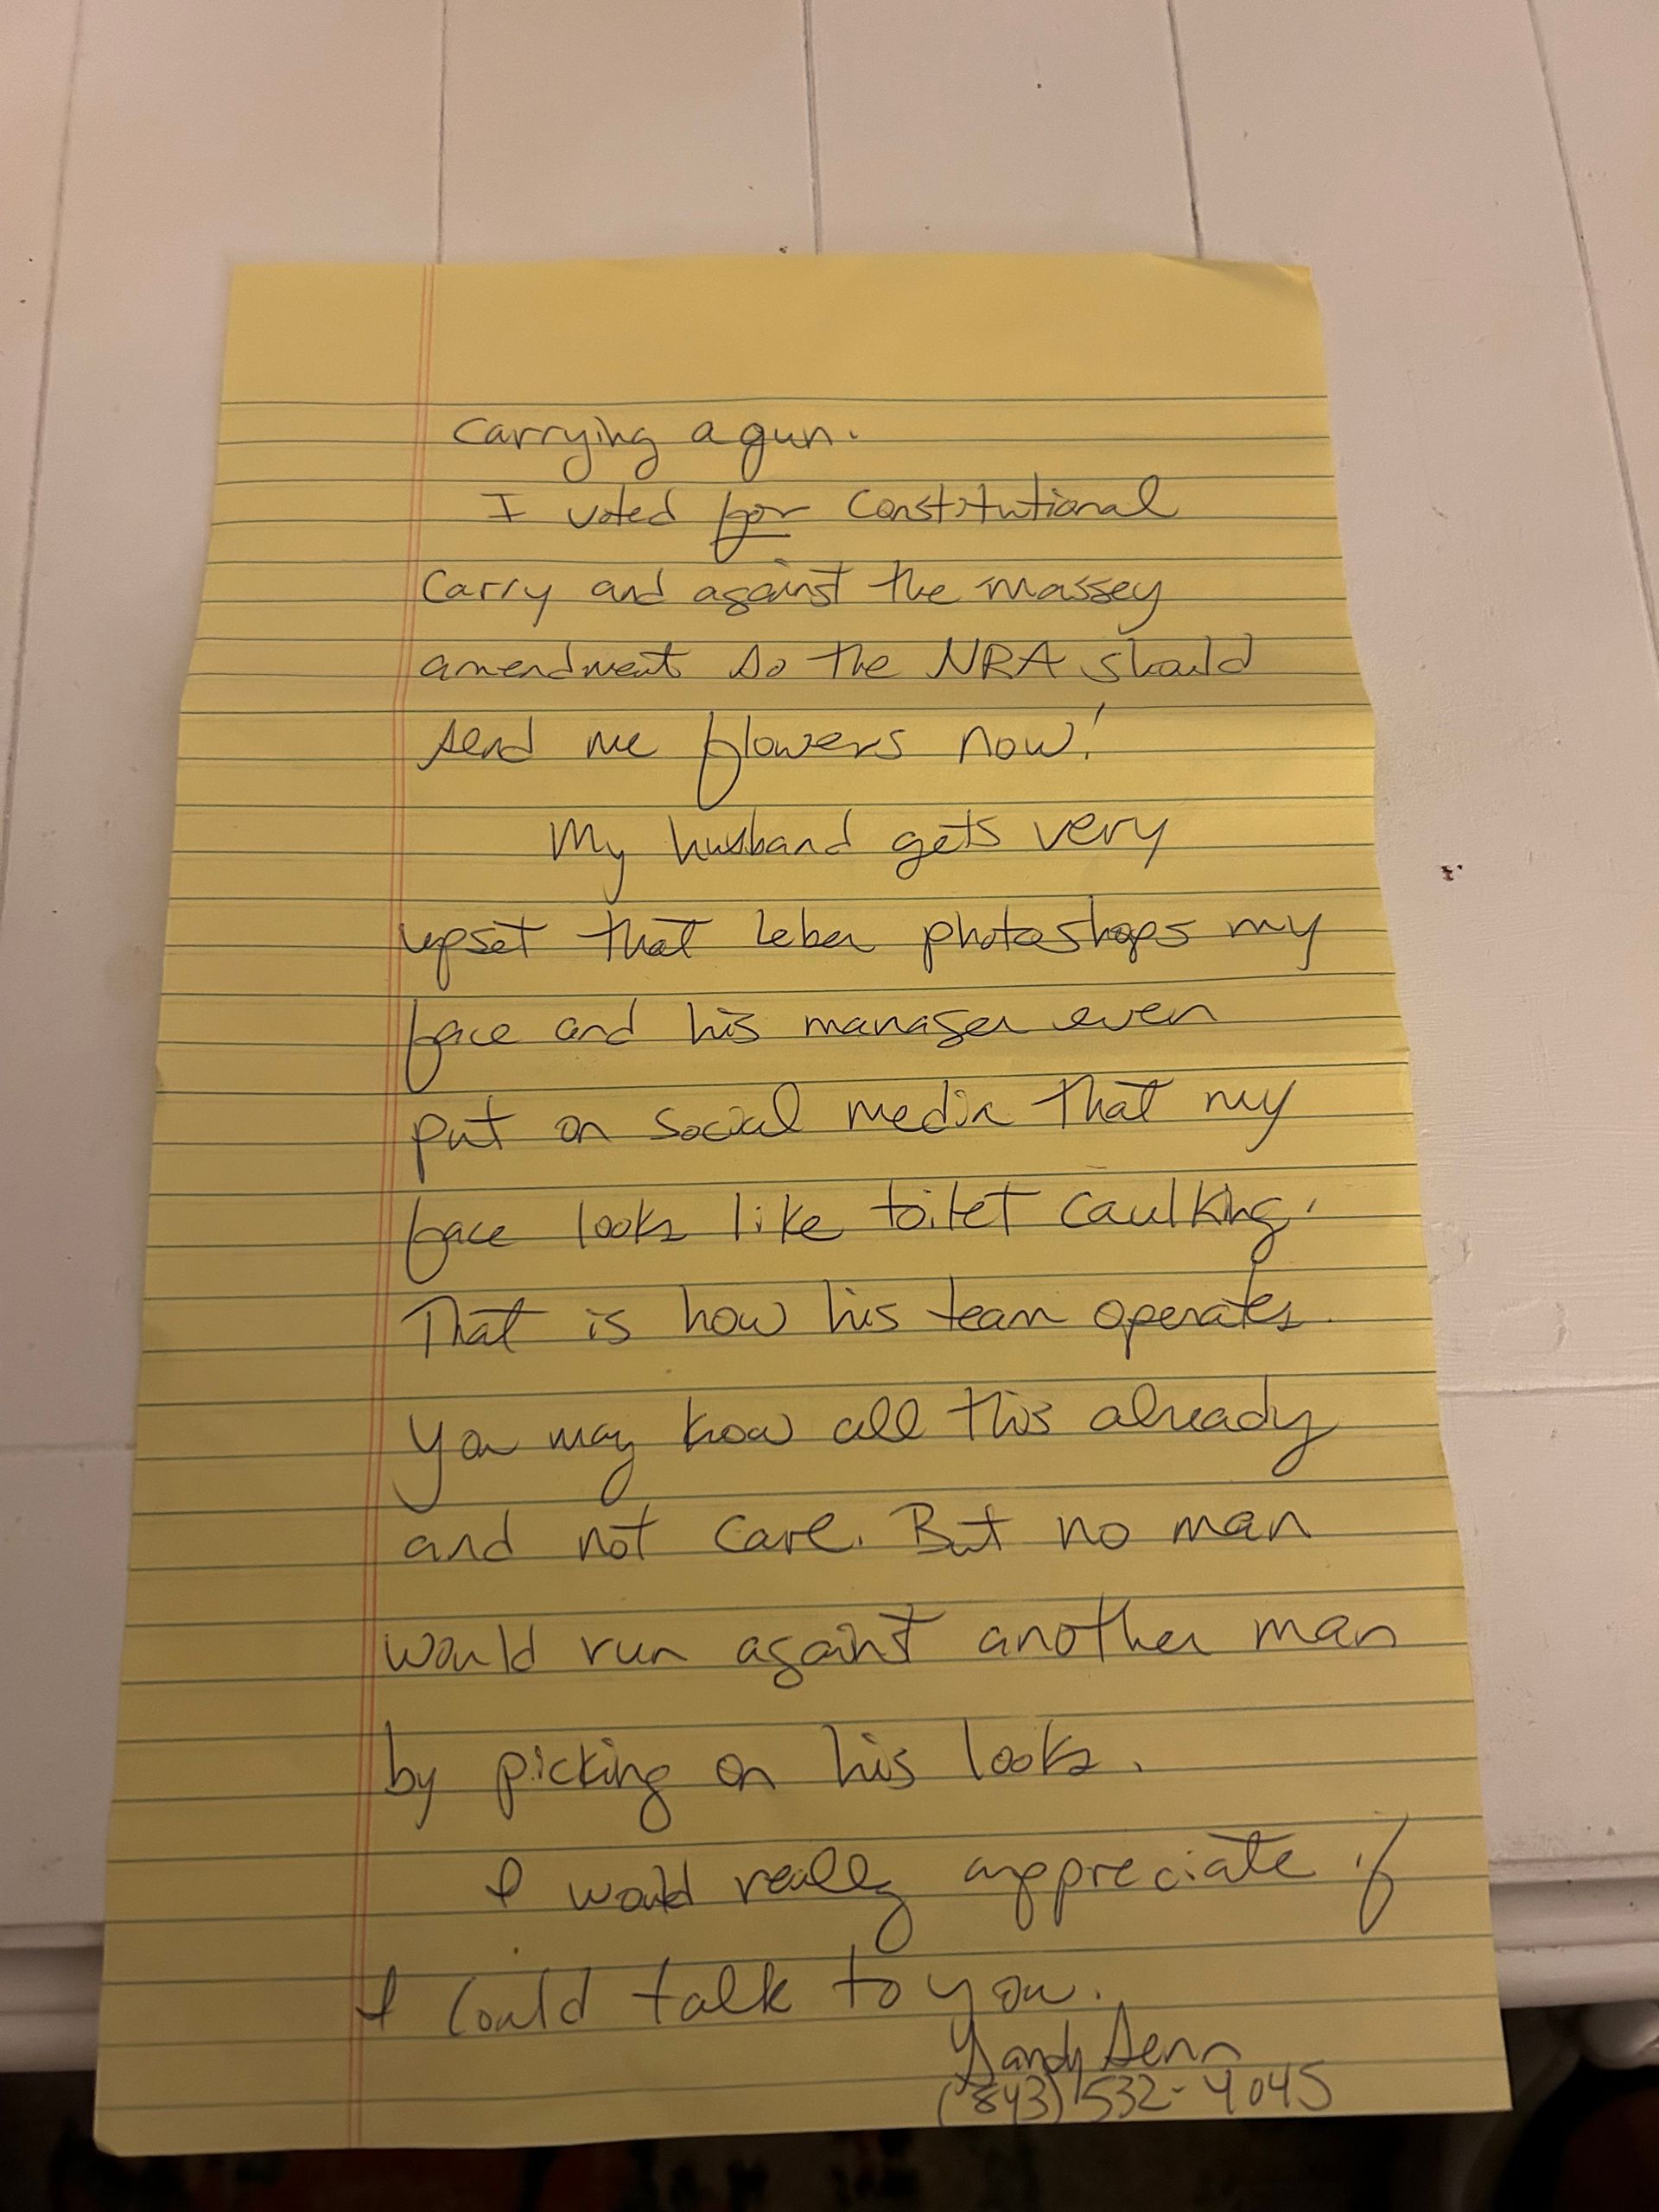 carrying a gun.
I voted for Constitutional
Carry and against the Massey
amendment so the NRA should
send me flowers now!
My husband gets very
upset that Leber photoshops my
face and his manager even
put on social media that my
face looks like toilet caulking.
That is how his team operates.
You may know all this already
and not care. But no man
would run against another man
by picking on his looks.
I would really appreciate if
I could talk to you.
Sandy Senn
(843) 532-4045